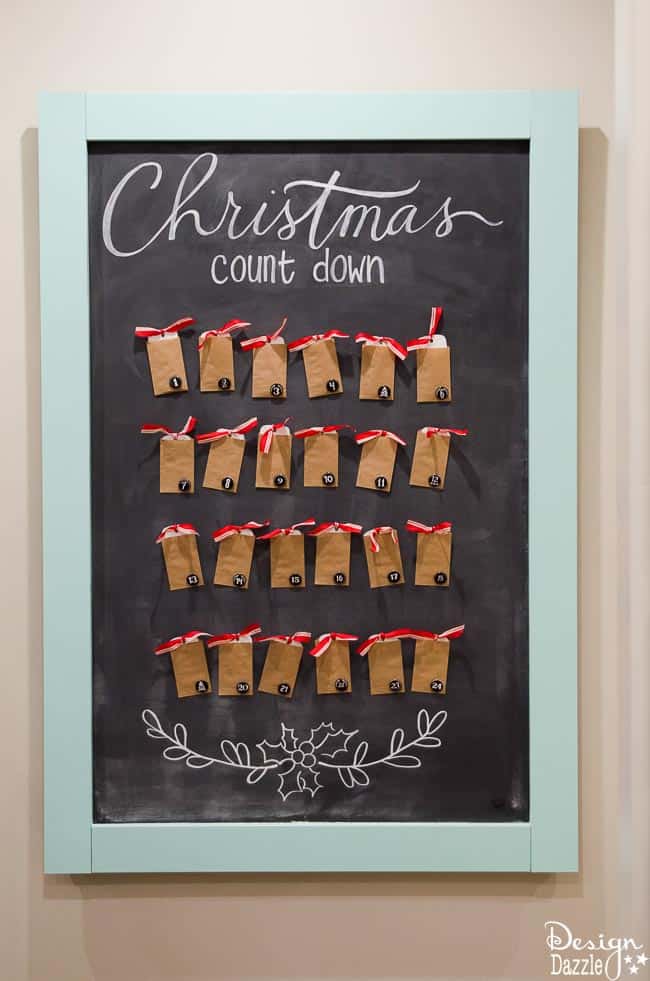 Christmas
count down
1 2 3 4 6
7 8 9 10 11 12
13 14 15 16 17 18
20 21 22 23 24
Design
Dazzle